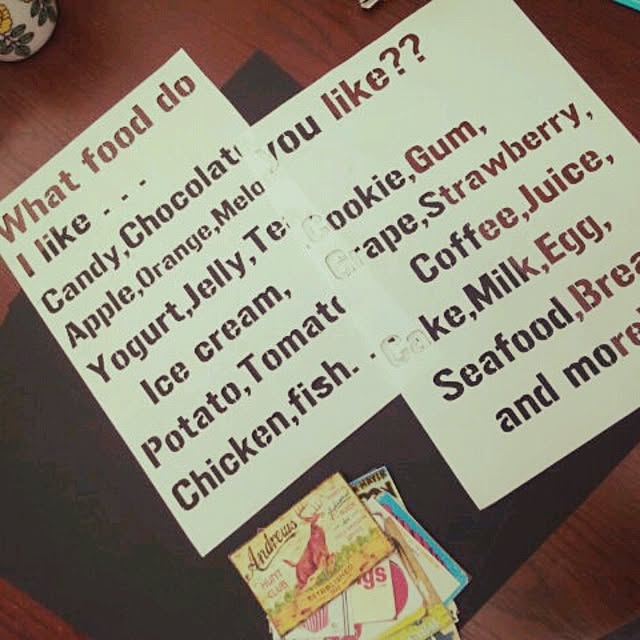 What food do you like??
I like . . .
Candy,Chocolate Cookie,Gum,
Apple,Orange,Melo Grape,Strawberry,
Yogurt,Jelly,Te Coffee,Juice,
Ice cream, Cake,Milk,Egg,
Potato,Tomato Seafood,Brea
Chicken,fish. . and more
Andrews
HUNT
CLUB
gs